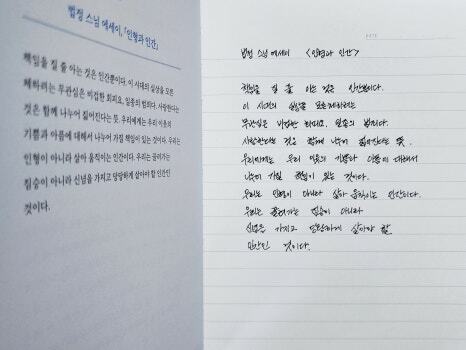 법정 스님 에세이, 「인형과 인간」
책임을 질 줄 아는 것은 인간뿐이다. 이 시대의 실상을 모른
체하려는 무관심은 비겁한 회피요, 일종의 범죄다. 사랑한다는
것은 함께 나누어 짊어진다는 뜻. 우리에게는 우리 이웃의
기쁨과 아픔에 대해서 나누어 가질 책임이 있는 것이다. 우리는
인형이 아니라 살아 움직이는 인간이다. 우리는 끌려가는
짐승이 아니라 신념을 가지고 당당하게 살아야 할 인간인
것이다.
DATE
법정 스님 에세이 <인형과 인간>
책임을 질 줄 아는 것은 인간뿐이다.
이 시대의 실상을 모른체하려는
무관심은 비겁한 회피요, 일종의 범죄다.
사랑한다는 것은 함께 나누어 짊어진다는 뜻.
우리에게는 우리 이웃의 기쁨과 아픔에 대해서
나누어 가질 책임이 있는 것이다.
우리는 인형이 아니라 살아 움직이는 인간이다.
우리는 끌려가는 짐승이 아니라
신념을 가지고 당당하게 살아야 할
인간인 것이다.